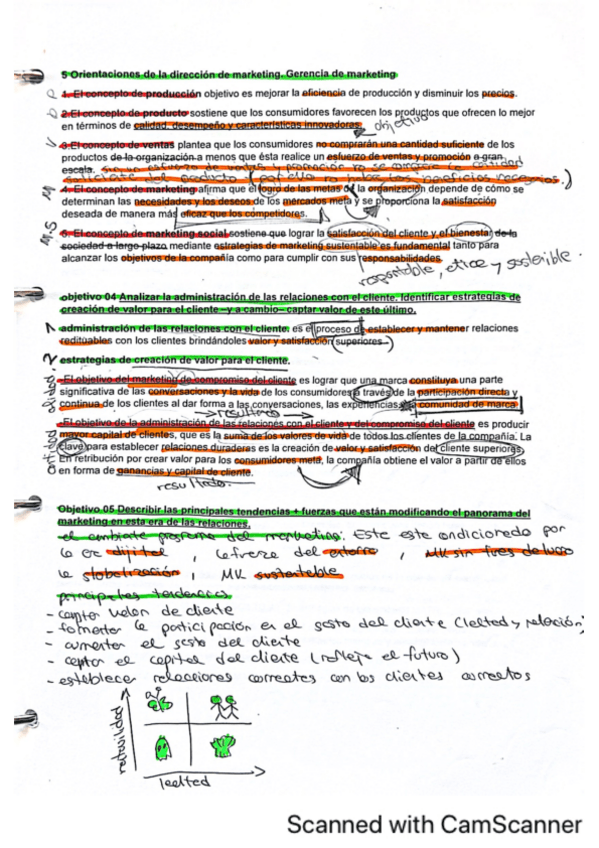 5 Orientaciones de la dirección de marketing. Gerencia de marketing
1. El concepto de producción objetivo es mejorar la eficiencia de producción y disminuir los precios.
2. El concepto de producto sostiene que los consumidores favorecen los productos que ofrecen lo mejor
en términos de calidad, desempeño y características innovadoras. objetivo
3. El concepto de ventas plantea que los consumidores no comprarán una cantidad suficiente de los
productos de la organización a menos que ésta realice un esfuerzo de ventas y promoción a gran
escala.
4. El concepto de marketing afirma que el logro de las metas de la organización depende de cómo se
determinan las necesidades y los deseos de los mercados meta y se proporciona la satisfacción
deseada de manera más eficaz que los competidores.
M
M.S
5. El concepto de marketing social sostiene que lograr la satisfacción del cliente y el bienestar de la
sociedad a largo plazo mediante estrategias de marketing sustentable es fundamental tanto para
alcanzar los objetivos de la compañía como para cumplir con sus responsabilidades.
respontable, etica y sostenible.
objetivo 04 Analizar la administración de las relaciones con el cliente. Identificar estrategias de
creación de valor para el cliente –y a cambio– captar valor de este último.
1 administración de las relaciones con el cliente. es el proceso de establecer y mantener relaciones
redituables con los clientes brindándoles valor y satisfacción superiores
2 estrategias de creación de valor para el cliente.
- El objetivo del marketing de compromiso del cliente es lograr que una marca constituya una parte
significativa de las conversaciones y la vida de los consumidores a través de la participación directa y
continua de los clientes al dar forma a las conversaciones, las experiencias comunidad de marca
resultado
- El objetivo de la administración de las relaciones con el cliente y del compromiso del cliente es producir
mayor capital de clientes, que es la suma de los valores de vida de todos los clientes de la compañía. La
clave para establecer relaciones duraderas es la creación de valor y satisfacción del cliente superiores.
En retribución por crear valor para los consumidores meta, la compañía obtiene el valor a partir de ellos
en forma de ganancias y capital de cliente.
resultado.
Objetivo 05 Describir las principales tendencias + fuerzas que están modificando el panorama del
marketing en esta era de las relaciones.
el ambiente del marketing: Este este condicionado por
la era dijital, la fuerza del entorno, MK sin fines de lucro
la globalización, MK sustentable
principales tendencias
- captar valor de cliente
- fomentar la participación en el gasto del cliente (lealtad y relación)
- aumentar el gasto del cliente
- captar el capital del cliente (refleja el futuro)
- establecer relaciones correctas con los clientes correctos
rentabilidad
lealtad
Scanned with CamScanner